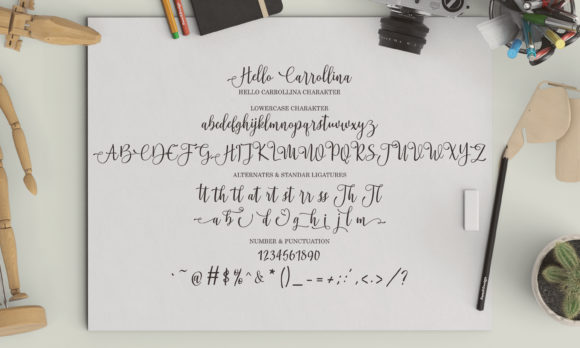 Hello Carrollina
HELLO CARROLLINA CHARAKTER
LOWERCASE CHARAKTER
abcdefghijklmnopqrstuvwxyz
ABCDEFGHIJKLMNOPQRSTUVWXYZ
ALTERNATES & STANDAR LIGATURES
tt th tl at rt st rr ss Th Tl
a b c d e g h i j l m
NUMBER & PUNCTUATION
1234561890
` ~ @ # $ % ^ & * ( ) _ - = + ; : ' , < . > / ?